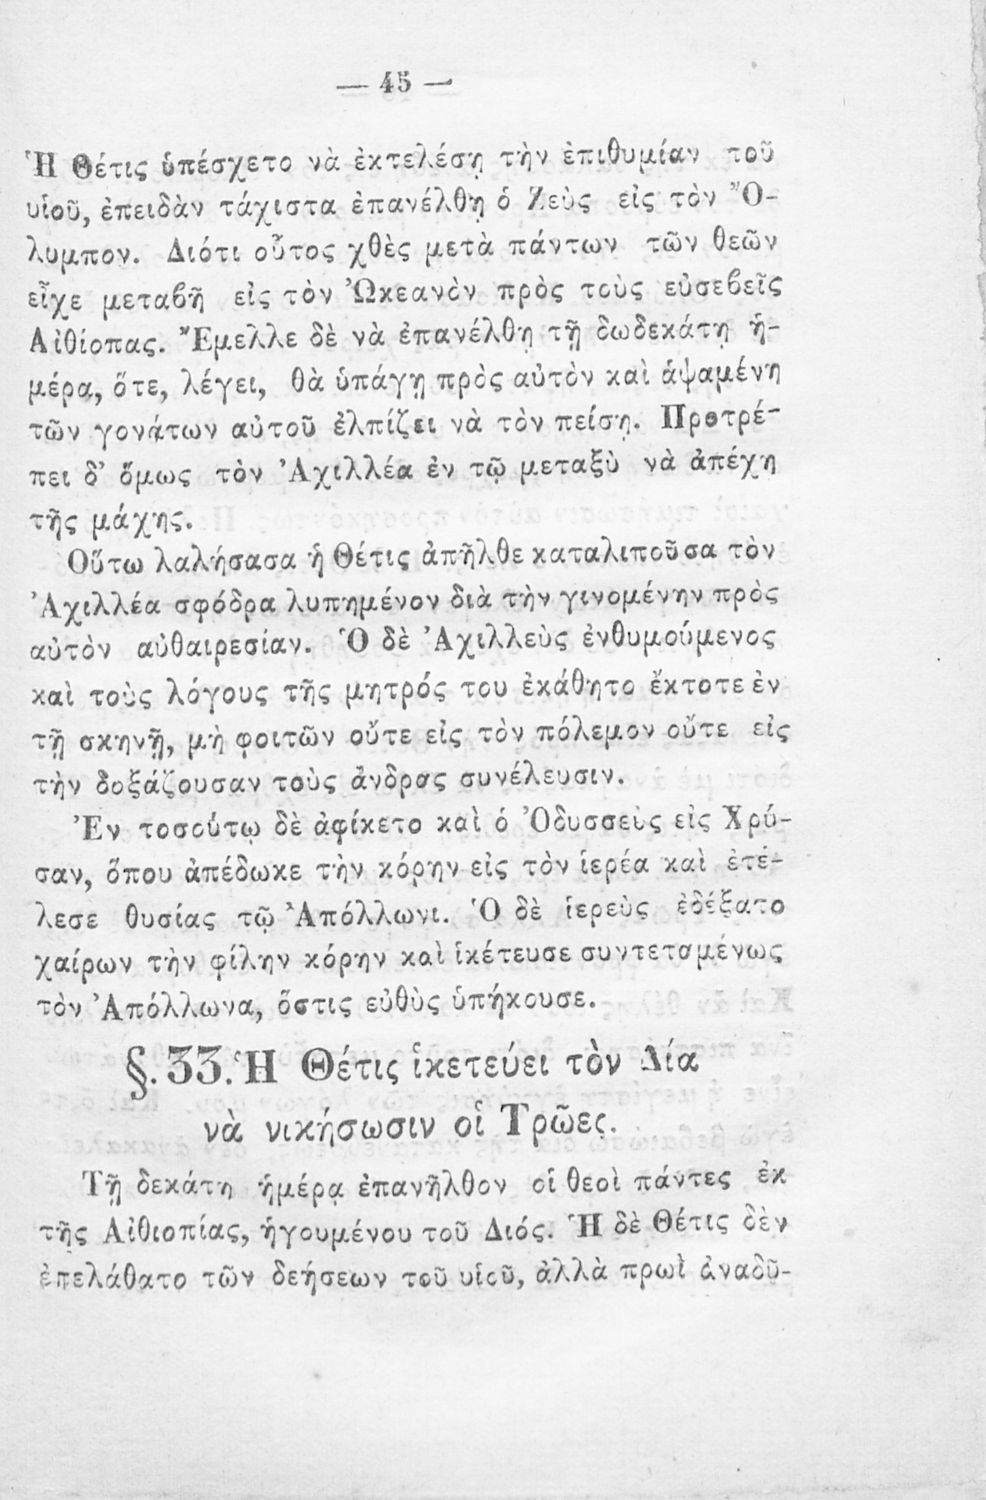 — 45 —
Ἡ Θέτις ὑπέσχετο νὰ ἐκτελέσῃ τὴν ἐπιθυμίαν τοῦ
υἱοῦ, ἐπειδὰν τάχιστα ἐπανέλθῃ ὁ Ζεὺς εἰς τὸν Ὄ-
λυμπον. Διότι οὗτος χθὲς μετὰ πάντων τῶν θεῶν
εἶχε μεταβῆ εἰς τὸν Ὠκεανὸν πρὸς τοὺς εὐσεβεῖς
Αἰθίοπας. Ἔμελλε δὲ νὰ ἐπανέλθῃ τῇ δωδεκάτῃ ἡ-
μέρα, ὅτε, λέγει, θὰ ὑπάγῃ πρὸς αὐτὸν καὶ ἁψαμένη
τῶν γονάτων αὐτοῦ ἐλπίζει νὰ τὸν πείσῃ. Προτρέ-
πει δ' ὅμως τὸν Ἀχιλλέα ἐν τῷ μεταξὺ νὰ ἀπέχῃ
τῆς μάχης.
Οὕτω λαλήσασα ἡ Θέτις ἀπῆλθε καταλιποῦσα τὸν
Ἀχιλλέα σφόδρα λυπημένον διὰ τὴν γινομένην πρὸς
αὐτὸν αὐθαιρεσίαν. Ὁ δὲ Ἀχιλλεὺς ἐνθυμούμενος
καὶ τοὺς λόγους τῆς μητρός του ἐκάθητο ἔκτοτε ἐν
τῇ σκηνῇ, μὴ φοιτῶν οὔτε εἰς τὸν πόλεμον οὔτε εἰς
τὴν δοξάζουσαν τοὺς ἄνδρας συνέλευσιν.
Ἐν τοσούτῳ δὲ ἀφίκετο καὶ ὁ Ὀδυσσεὺς εἰς Χρύ-
σαν, ὅπου ἀπέδωκε τὴν κόρην εἰς τὸν ἱερέα καὶ ἐτέ-
λεσε θυσίας τῷ Ἀπόλλωνι. Ὁ δὲ ἱερεὺς ἐδέξατο
χαίρων τὴν φίλην κόρην καὶ ἱκέτευσε συντεταμένως
τὸν Ἀπόλλωνα, ὅστις εὐθὺς ὑπήκουσε.
§. 33. Ἡ Θέτις ἱκετεύει τὸν Δία
νὰ νικήσωσιν οἱ Τρῶες.
Τῇ δεκάτῃ ἡμέρᾳ ἐπανῆλθον οἱ θεοὶ πάντες ἐκ
τῆς Αἰθιοπίας, ἡγουμένου τοῦ Διός. Ἡ δὲ Θέτις δὲν
ἐπελάθατο τῶν δεήσεων τοῦ υἱοῦ, ἀλλὰ πρωῒ ἀναδῦ-